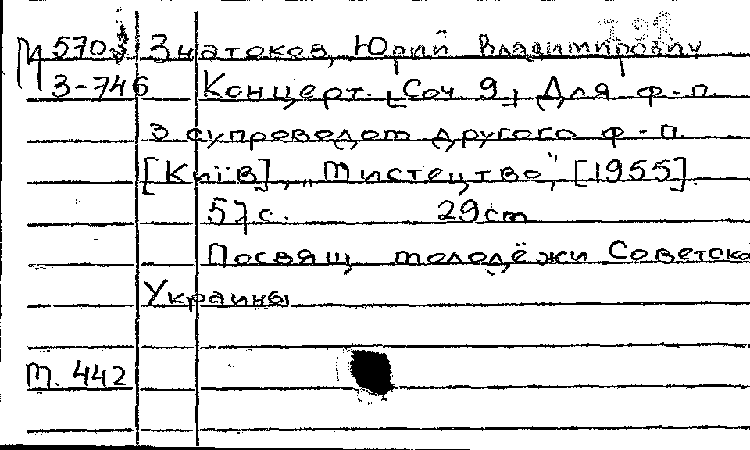 М 5703 Знатоков, Юрий Владимирович
З-746 Концерт. [Соч 9] Для ф-п.
з супроводом другого ф-п.
[Київ], "Мистецтво", [1955].
57 с. 29 cm
Посвящ. молодёжи Советско
Украины
m. 442